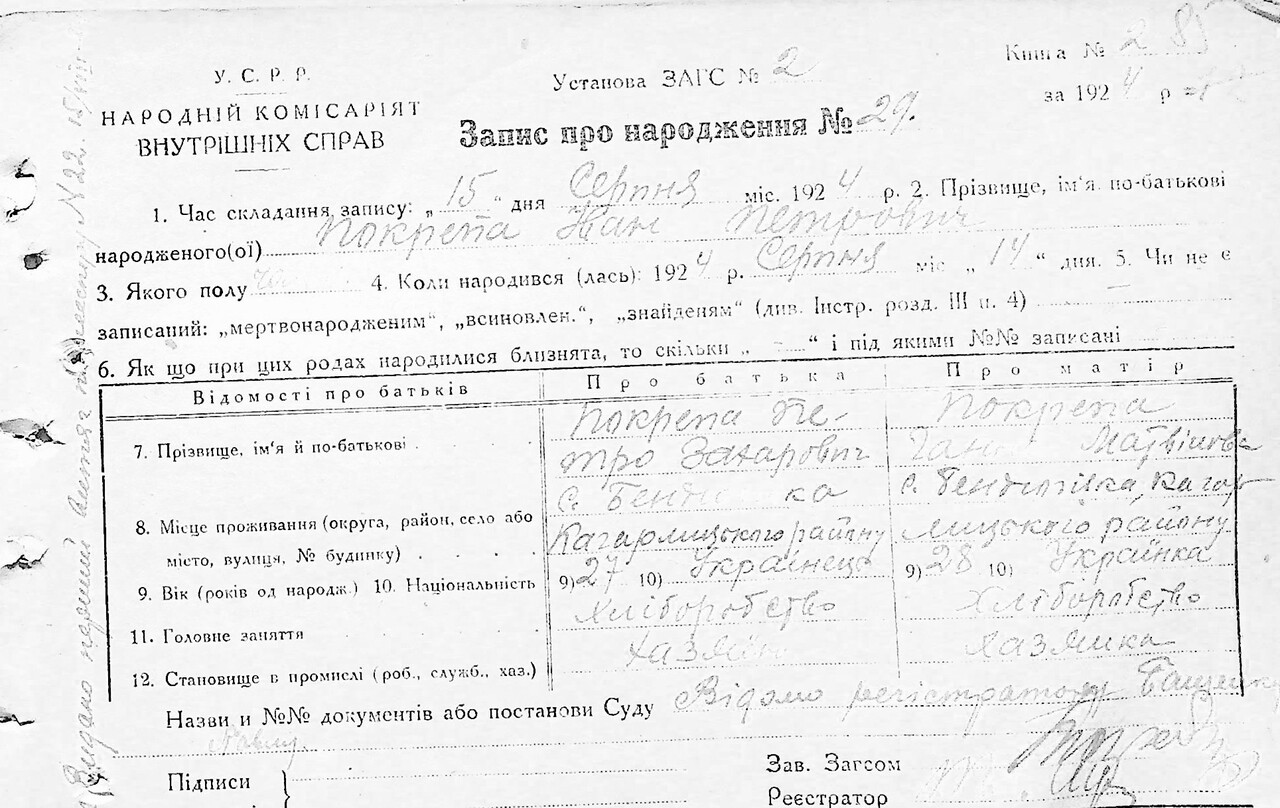 У. С. Р. Р.
НАРОДНІЙ КОМІСАРІЯТ
ВНУТРІШНІХ СПРАВ
Установа ЗАГС № 2
Книга № 2
за 1924 р
Запис про народження № 29.
1. Час складання запису: „ 15 “ дня Серпня міс. 1924 р. 2. Прізвище, ім'я по-батькові
народженого(ої) Покрепа Іван Петрович
3. Якого полу 4. Коли народився (лась): 1924 р. Серпня міс „ 14 “ дня. 5. Чи не є
записаний: „мертвонародженим“, „всиновлен.“, „знайденям“ (див. Інстр. розд. III п. 4)
6. Як що при цих родах народилися близнята, то скільки „ — “ і під якими №№ записані
Відомості про батьків Про батька Про матір
7. Прізвище, ім'я й по-батькові Покрепа Пе- Покрепа
тро Захарович Матвіївна
8. Місце проживання (округа, район, село або с. с. Кагар
місто, вулиця, № будинку) Кагарлицького району лицького району
9. Вік (років од народж.) 10. Національність 9) 27 10) Українець 9) 28 10) Українка
11. Головне заняття Хліборобство Хліборобство
12. Становище в промислі (роб., служб., хаз.) Хазяїн Хазяйка
Назви и №№ документів або постанови Суду Відомо регістратору
Підписи
Зав. Загсом
Реєстратор
Видано N 22. 15/VIII